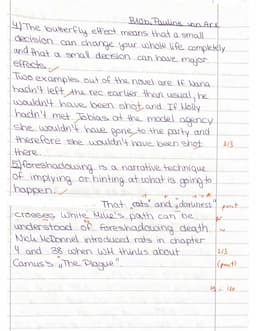 Pauline von Arx
4) The butterfly effect means that a small
decision can change your whole life completely
and that a small decision can have major
effects.
Two examples out of the novel are if Nana
hadn't left the rec earlier than usual, he
wouldn't have been shot and if Molly
hadn't met Tobias at the model agency
she wouldn't have gone to the party and
therefore she wouldn't have been shot
there. 2/3
5) foreshadowing is a narrative technique
of implying or hinting at what is going to
happen.
That „rats" and „darkness"
crosses White Mike's path can be
understood of foreshadowing death.
Nick McDonnel introduced rats in chapter
4 and 38 when WM thinks about 2/3
Camus's „The Plague".